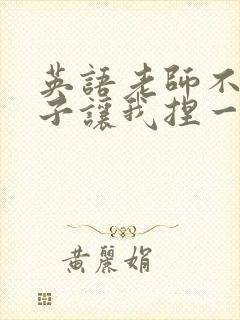 英語老師不
子讓我捏一
黃麗娟